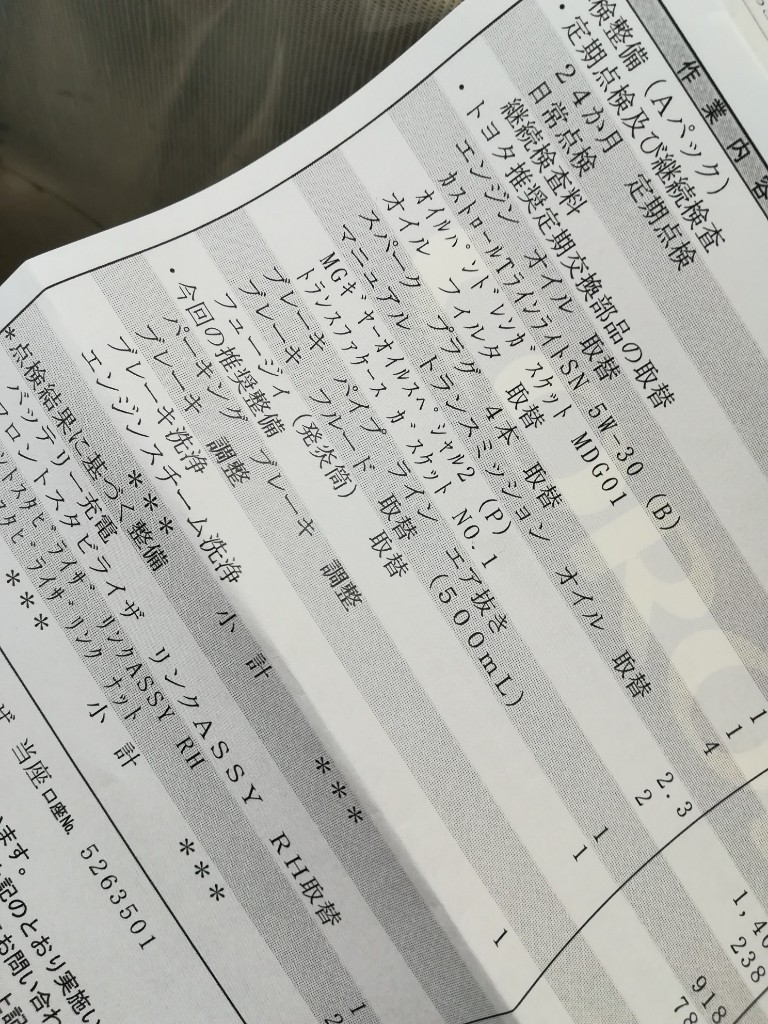 作業内容
検整備（Aパック）
・定期点検及び継続検査
２４か月　定期点検
日常点検
継続検査料
・トヨタ推奨定期交換部品の取替
エンジン　オイル　取替
カストロールTラインライトSN 5W-30 (B)
オイルパンドレンガスケット MDG01 1
オイル　フィルタ　取替 1
スパーク　プラグ　４本　取替 4
マニュアル　トランスミッション　オイル　取替
MGギヤーオイルスペシャル2 (P) 2.3
トランスファケース ガスケット NO.1 2
ブレーキ　パイプ　ライン　エア抜き
ブレーキ　フルード　取替　（５００ｍＬ） 1
フュージィ　（発炎筒）　取替 1
・今回の推奨整備
パーキング　ブレーキ　調整
ブレーキ　調整
ブレーキ洗浄
エンジンスチーム洗浄 1
***　小　計　***
*点検結果に基づく整備
バッテリー充電
フロントスタビライザ　リンクＡＳＳＹ　ＲＨ取替
スタビライザ リンクASSY RH 1
スタビライザ リンク ナット
***　小　計　***
238
918
当座口座No. 5263501
ます。
記のとおり実施い
お問い合わ
上記